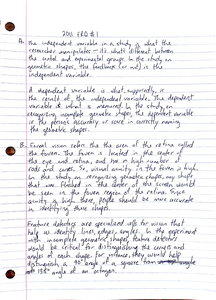 2011 FRQ #1
A. The independent variable in a study is what the
researcher manipulates - it's what's different between
the control and experimental groups. In the study on
geometric shapes, the
independent variable.
A dependent variable is what, supposedly, is
the result of the independent variable. The dependent
variable is what is measured. In the study on
recognizing incomplete geometric shapes, the dependent variable
is the person's accuracy or rate in correctly naming
the geometric shapes.
B. Foveal vision refers the the area of the retina called
the fovea. The fovea is located in the center of
the eye and retina, and has a high number of
rods and cones. So, visual acuity in the fovea is high.
In the study on recognizing geometric shapes, any shape
that was flashed in the center of the screen would
be seen in the fovea region of the retina. Since
acuity is high there, people should be more accurate
in identifying those shapes.
Feature detectors are specialized cells for vision that
help us identify lines, edges, angles. In the experiment
with incomplete geometric shapes, feature detectors
would be critical for distinguishing the curves and
angles of each shape. For instance, they would help
distinguish a 90° angle of a square from
a 135° angle of an octagon.